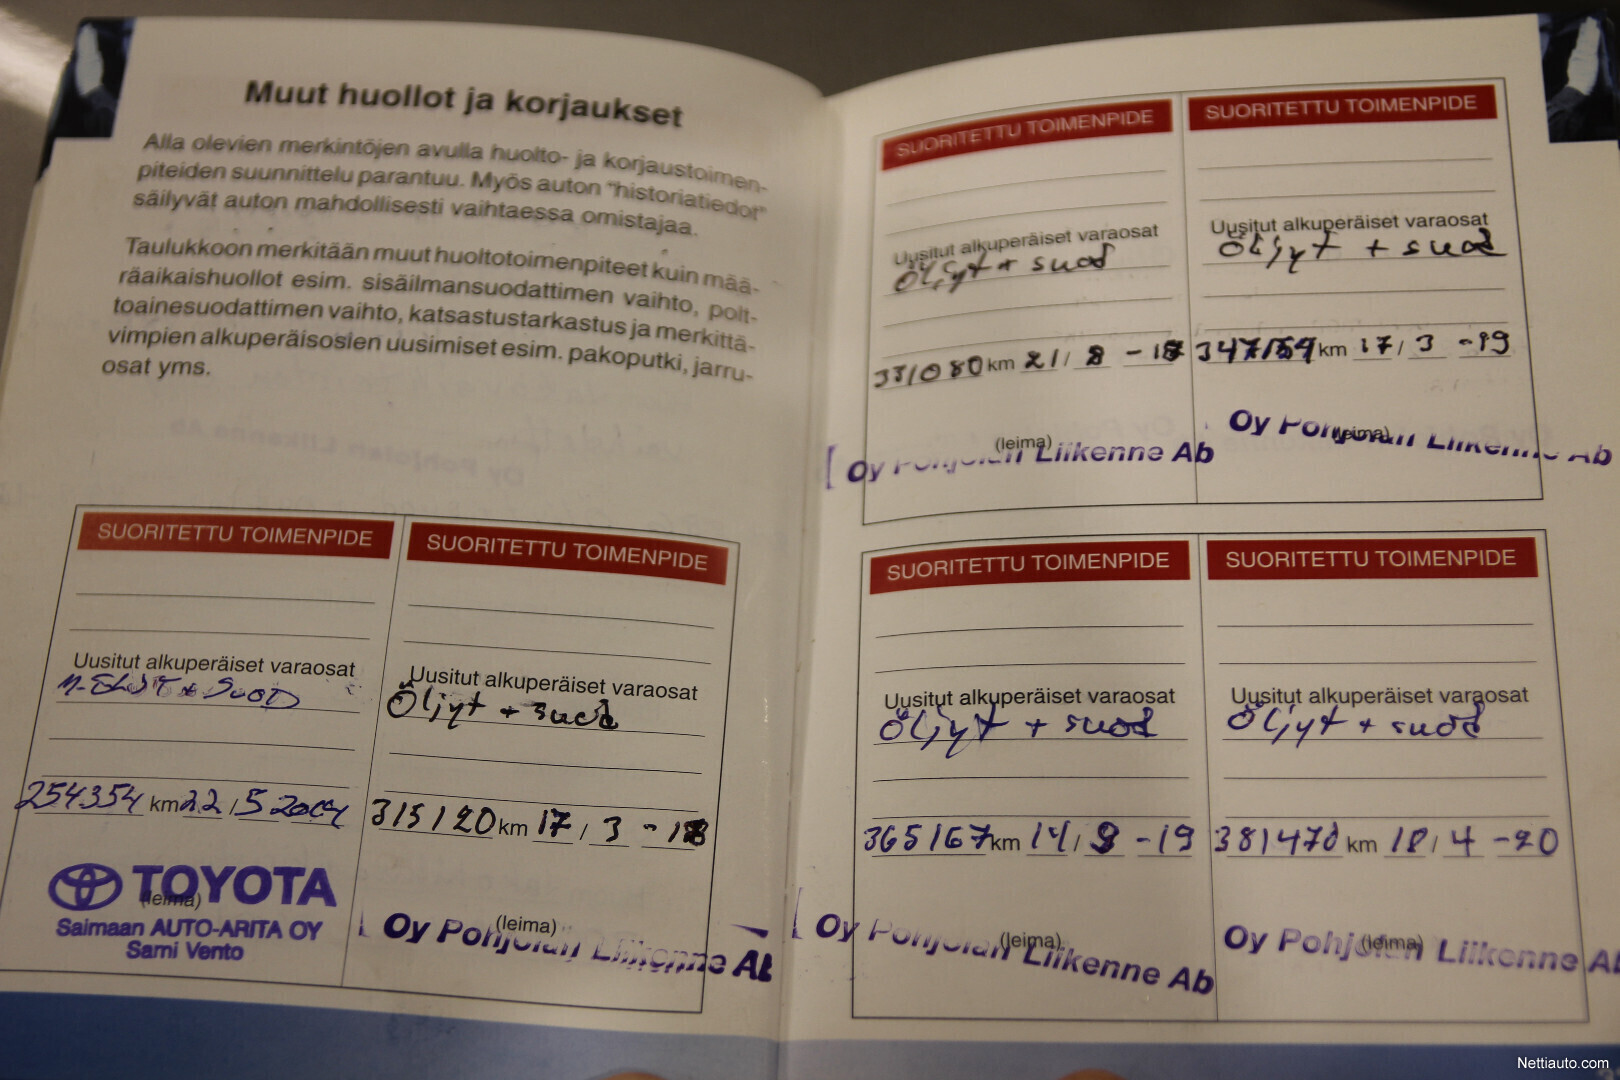 Muut huollot ja korjaukset
Alla olevien merkintöjen avulla huolto- ja korjaustoimen-
piteiden suunnittelu parantuu. Myös auton "historiatiedot"
säilyvät auton mahdollisesti vaihtaessa omistajaa.
Taulukkoon merkitään muut huoltotoimenpiteet kuin mää-
räaikaishuollot esim. sisäilmansuodattimen vaihto, polt-
toainesuodattimen vaihto, katsastustarkastus ja merkittä-
vimpien alkuperäisosien uusimiset esim. pakoputki, jarru-
osat yms.
SUORITETTU TOIMENPIDE
Uusitut alkuperäiset varaosat
+ SUOD
254354 km 22 / 5
TOYOTA
(leima)
Saimaan AUTO-ARITA OY
Sami Vento
SUORITETTU TOIMENPIDE
Uusitut alkuperäiset varaosat
Öljyt + suod
315120 km 17 / 3 -18
(leima)
Oy Pohjolan Liikenne Ab
SUORITETTU TOIMENPIDE
Uusitut alkuperäiset varaosat
Öljyt + suod
331080 km 21 / 8 -18
(leima)
Oy Pohjolan Liikenne Ab
SUORITETTU TOIMENPIDE
Uusitut alkuperäiset varaosat
Öljyt + suod
km 17 / 3 -19
(leima)
Oy Pohjolan Liikenne Ab
SUORITETTU TOIMENPIDE
Uusitut alkuperäiset varaosat
Öljyt + suod
365167 km 14 / 9 -19
(leima)
Oy Pohjolan Liikenne Ab
SUORITETTU TOIMENPIDE
Uusitut alkuperäiset varaosat
Öljyt + suod
381470 km 18 / 4 -20
(leima)
Oy Pohjolan Liikenne Ab
Nettiauto.com